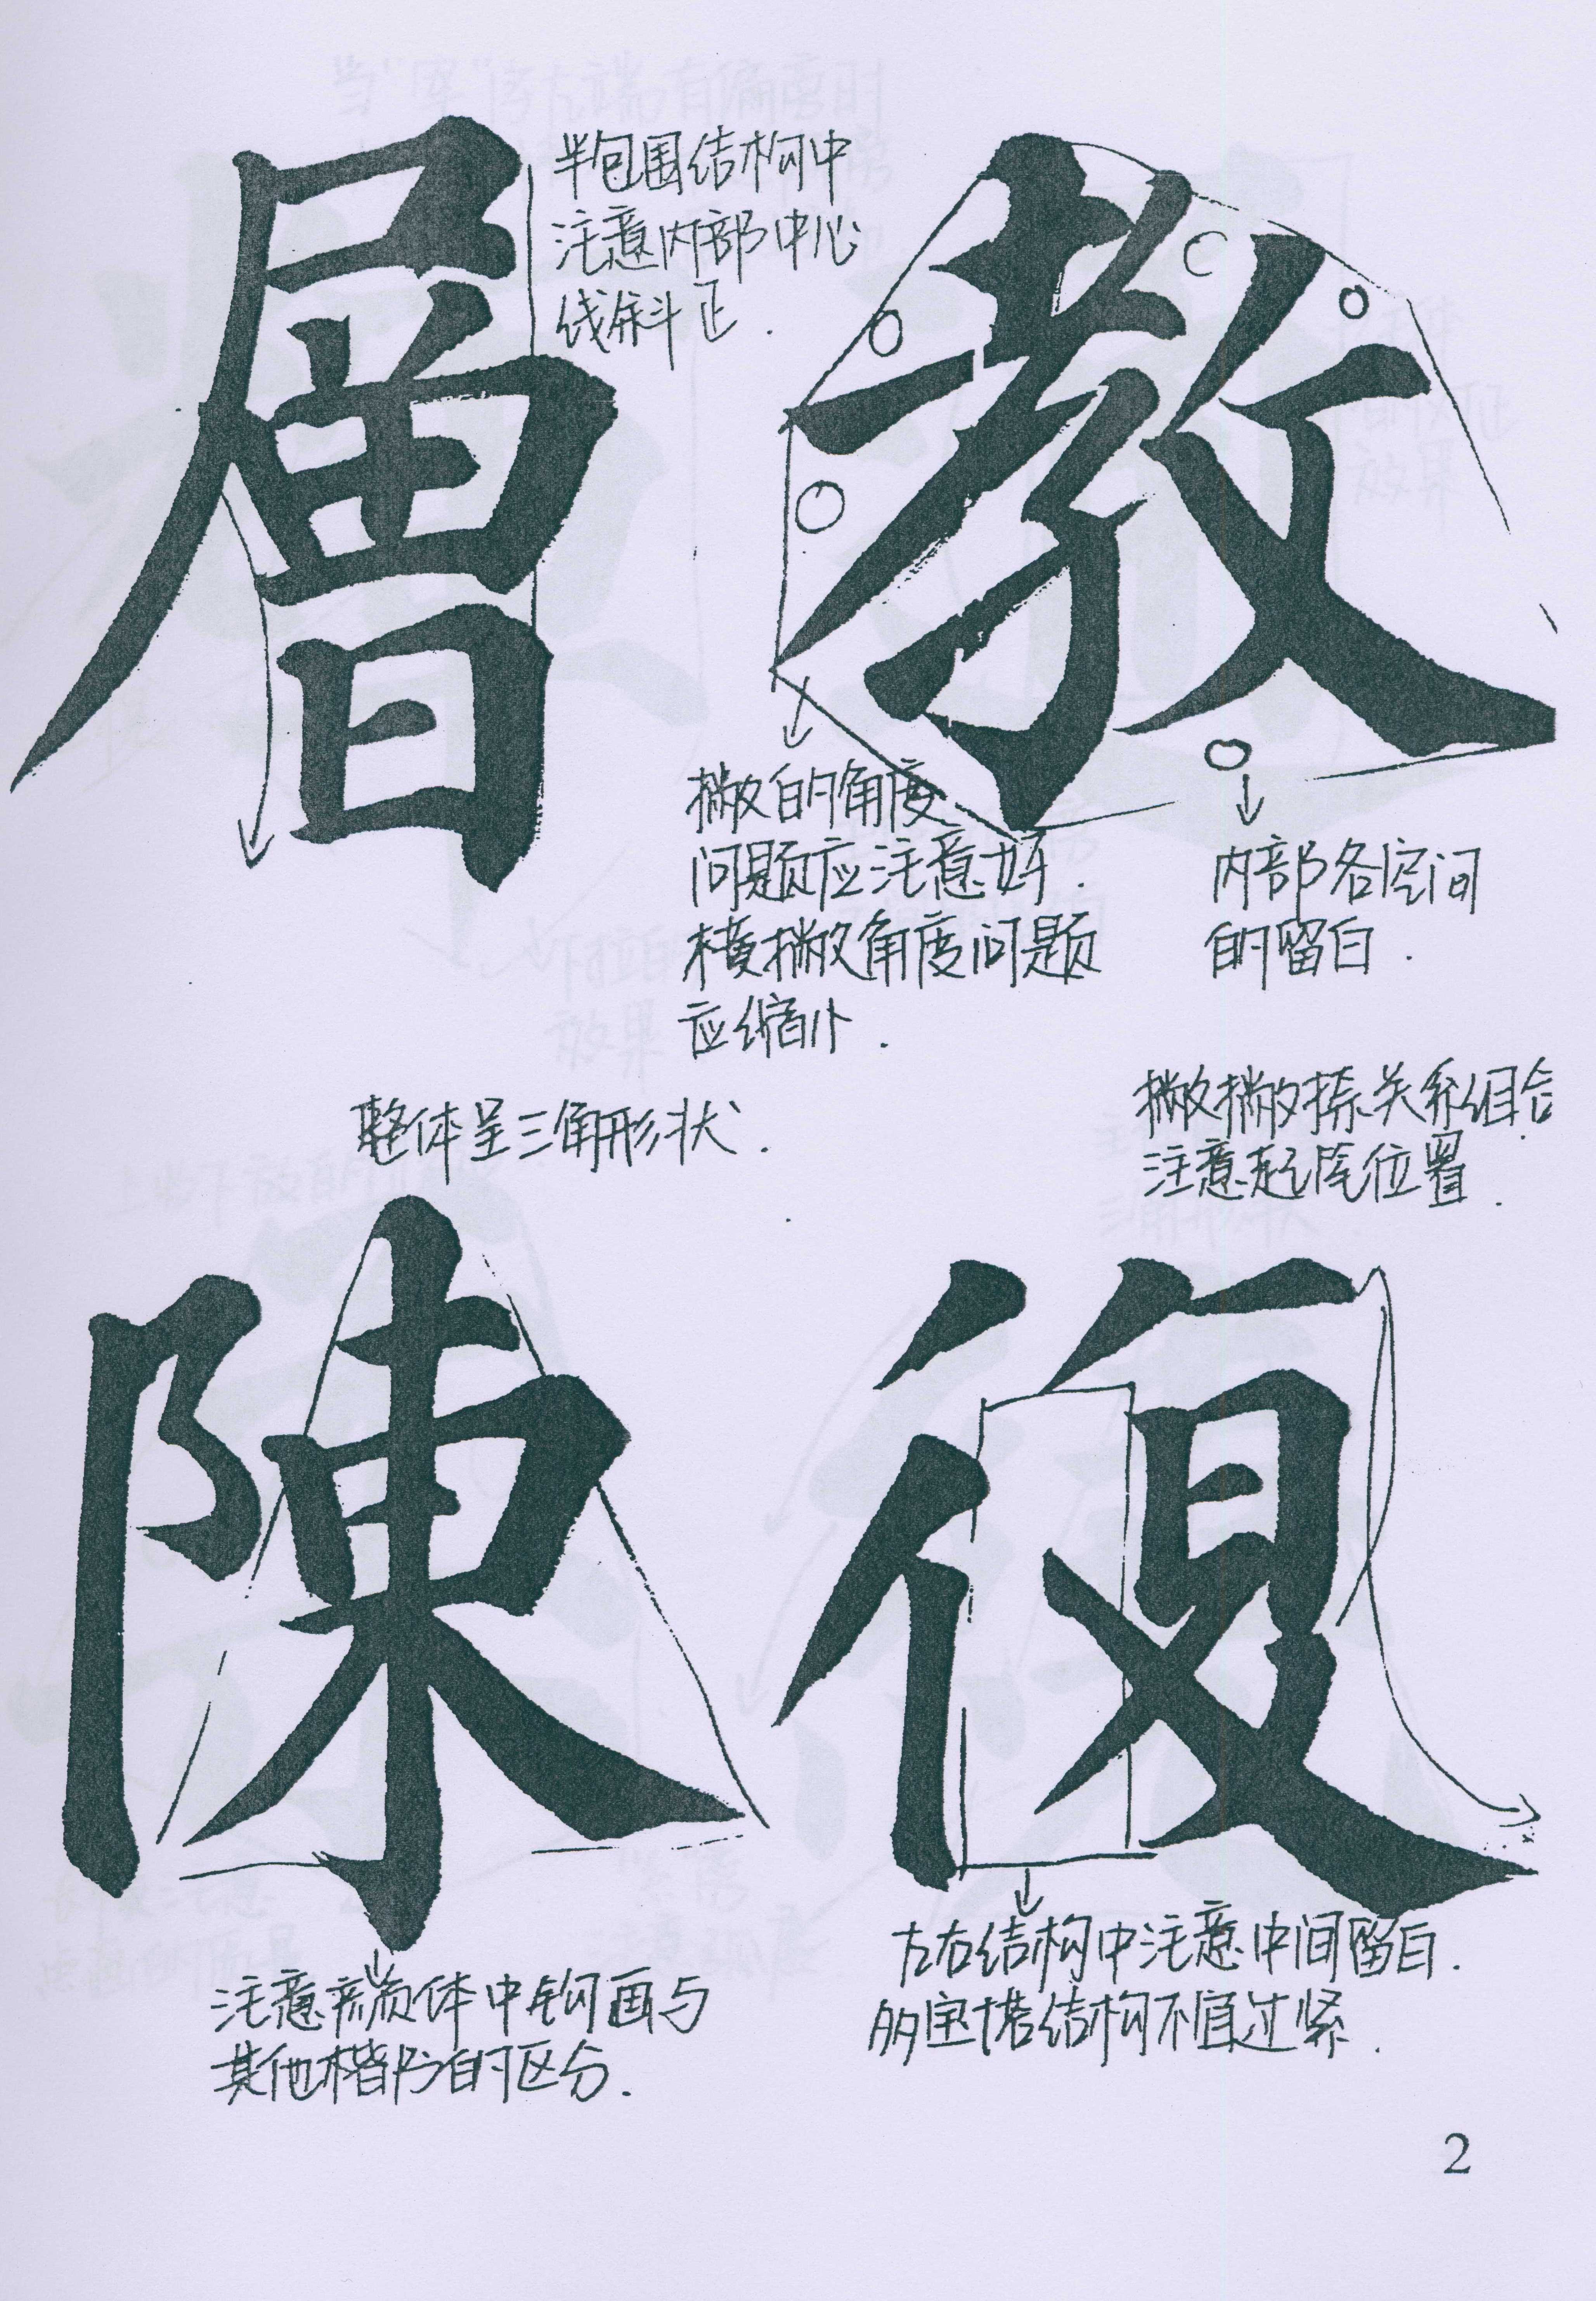 層
半包围结构中
注意内部中心
线斜正.
教
撇的角度
问题应注意好.
横撇角度问题
应缩小.
内部各空间
的留白.
整体呈三角形状.
陳
注意颜体中钩画与
其他楷书的区分.
撇撇捺关系组合.
注意起尾位置.
復
左右结构中注意中间留白.
多宝塔结构不宜过紧.
2